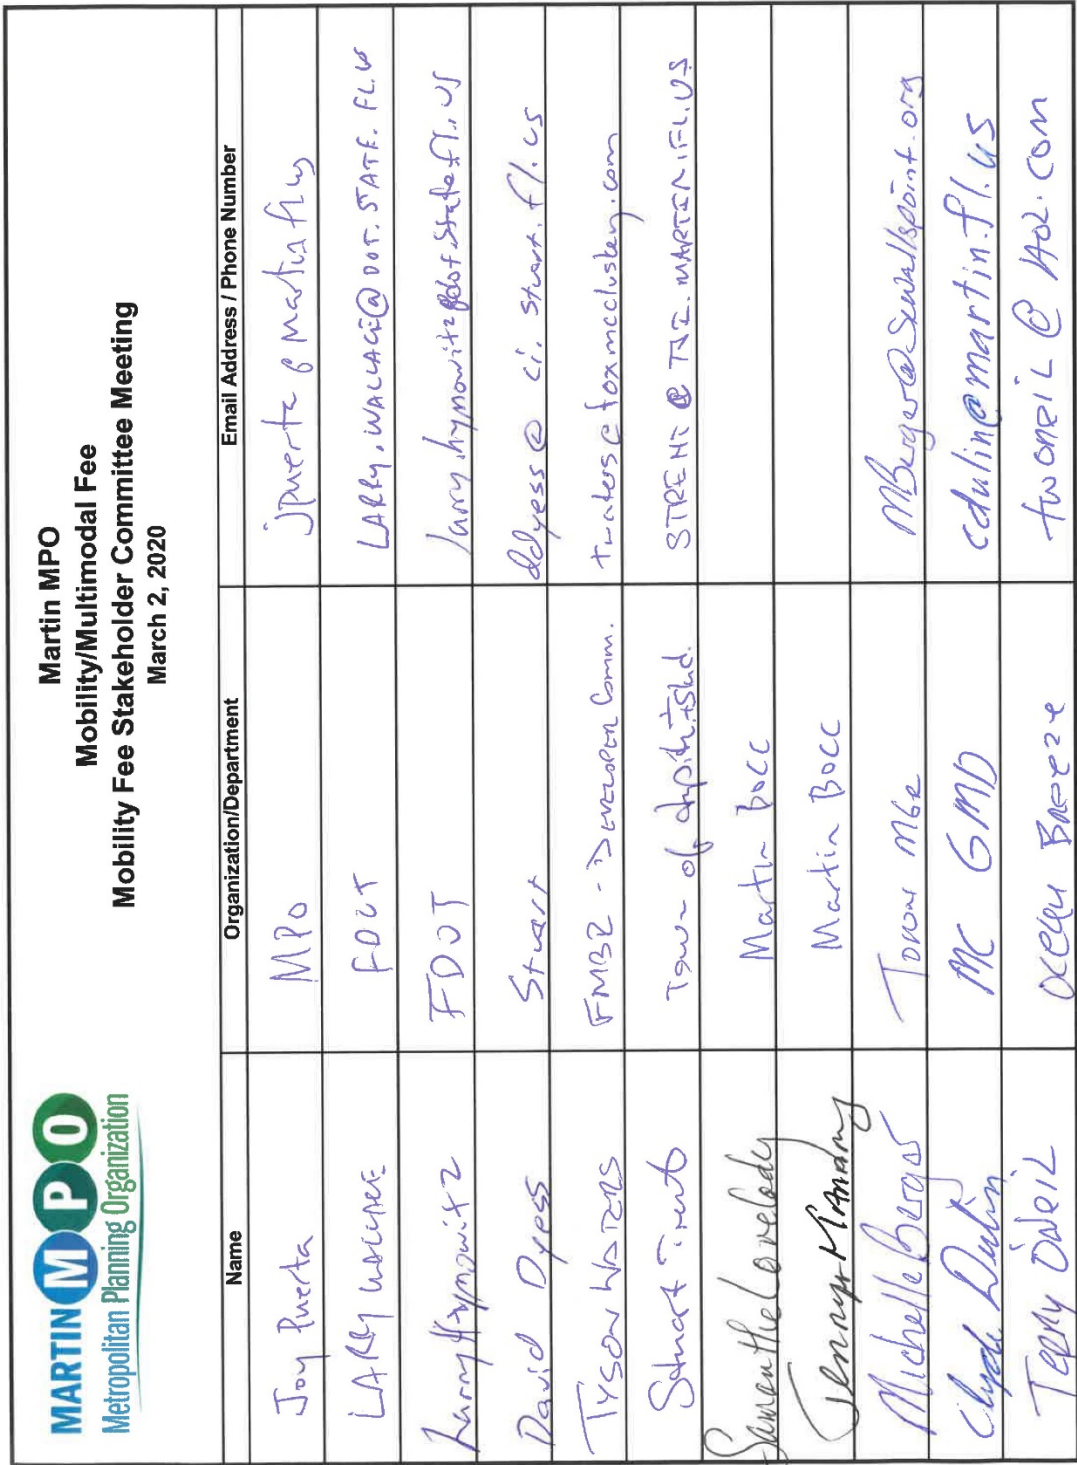 MARTIN MPO
Metropolitan Planning Organization
Martin MPO
Mobility/Multimodal Fee
Mobility Fee Stakeholder Committee Meeting
March 2, 2020
Name Organization/Department Email Address / Phone Number
Joy Puerta MPO jpuerta@martin.fl.us
LARRY WALLACE FDOT LARRY.WALLACE@DOT.STATE.FL.US
Larry Hymowitz FDOT larry.hymowitz@dot.state.fl.us
David Dyess Stuart ddyess@ci.stuart.fl.us
TYSON WATERS FMBR - DEVELOPER Comm. twaters@foxmccluskey.com
Stuart Trent Town of Jupiter Island
Samantha Lovelady Martin BOCC
Martin BOCC
Michelle Berger Town MGR MBerger@sewallspoint.org
Clyde Dulin MC GMD cdulin@martin.fl.us
TERRY O'NEIL OCEAN BREEZE twoneil@AOL.COM